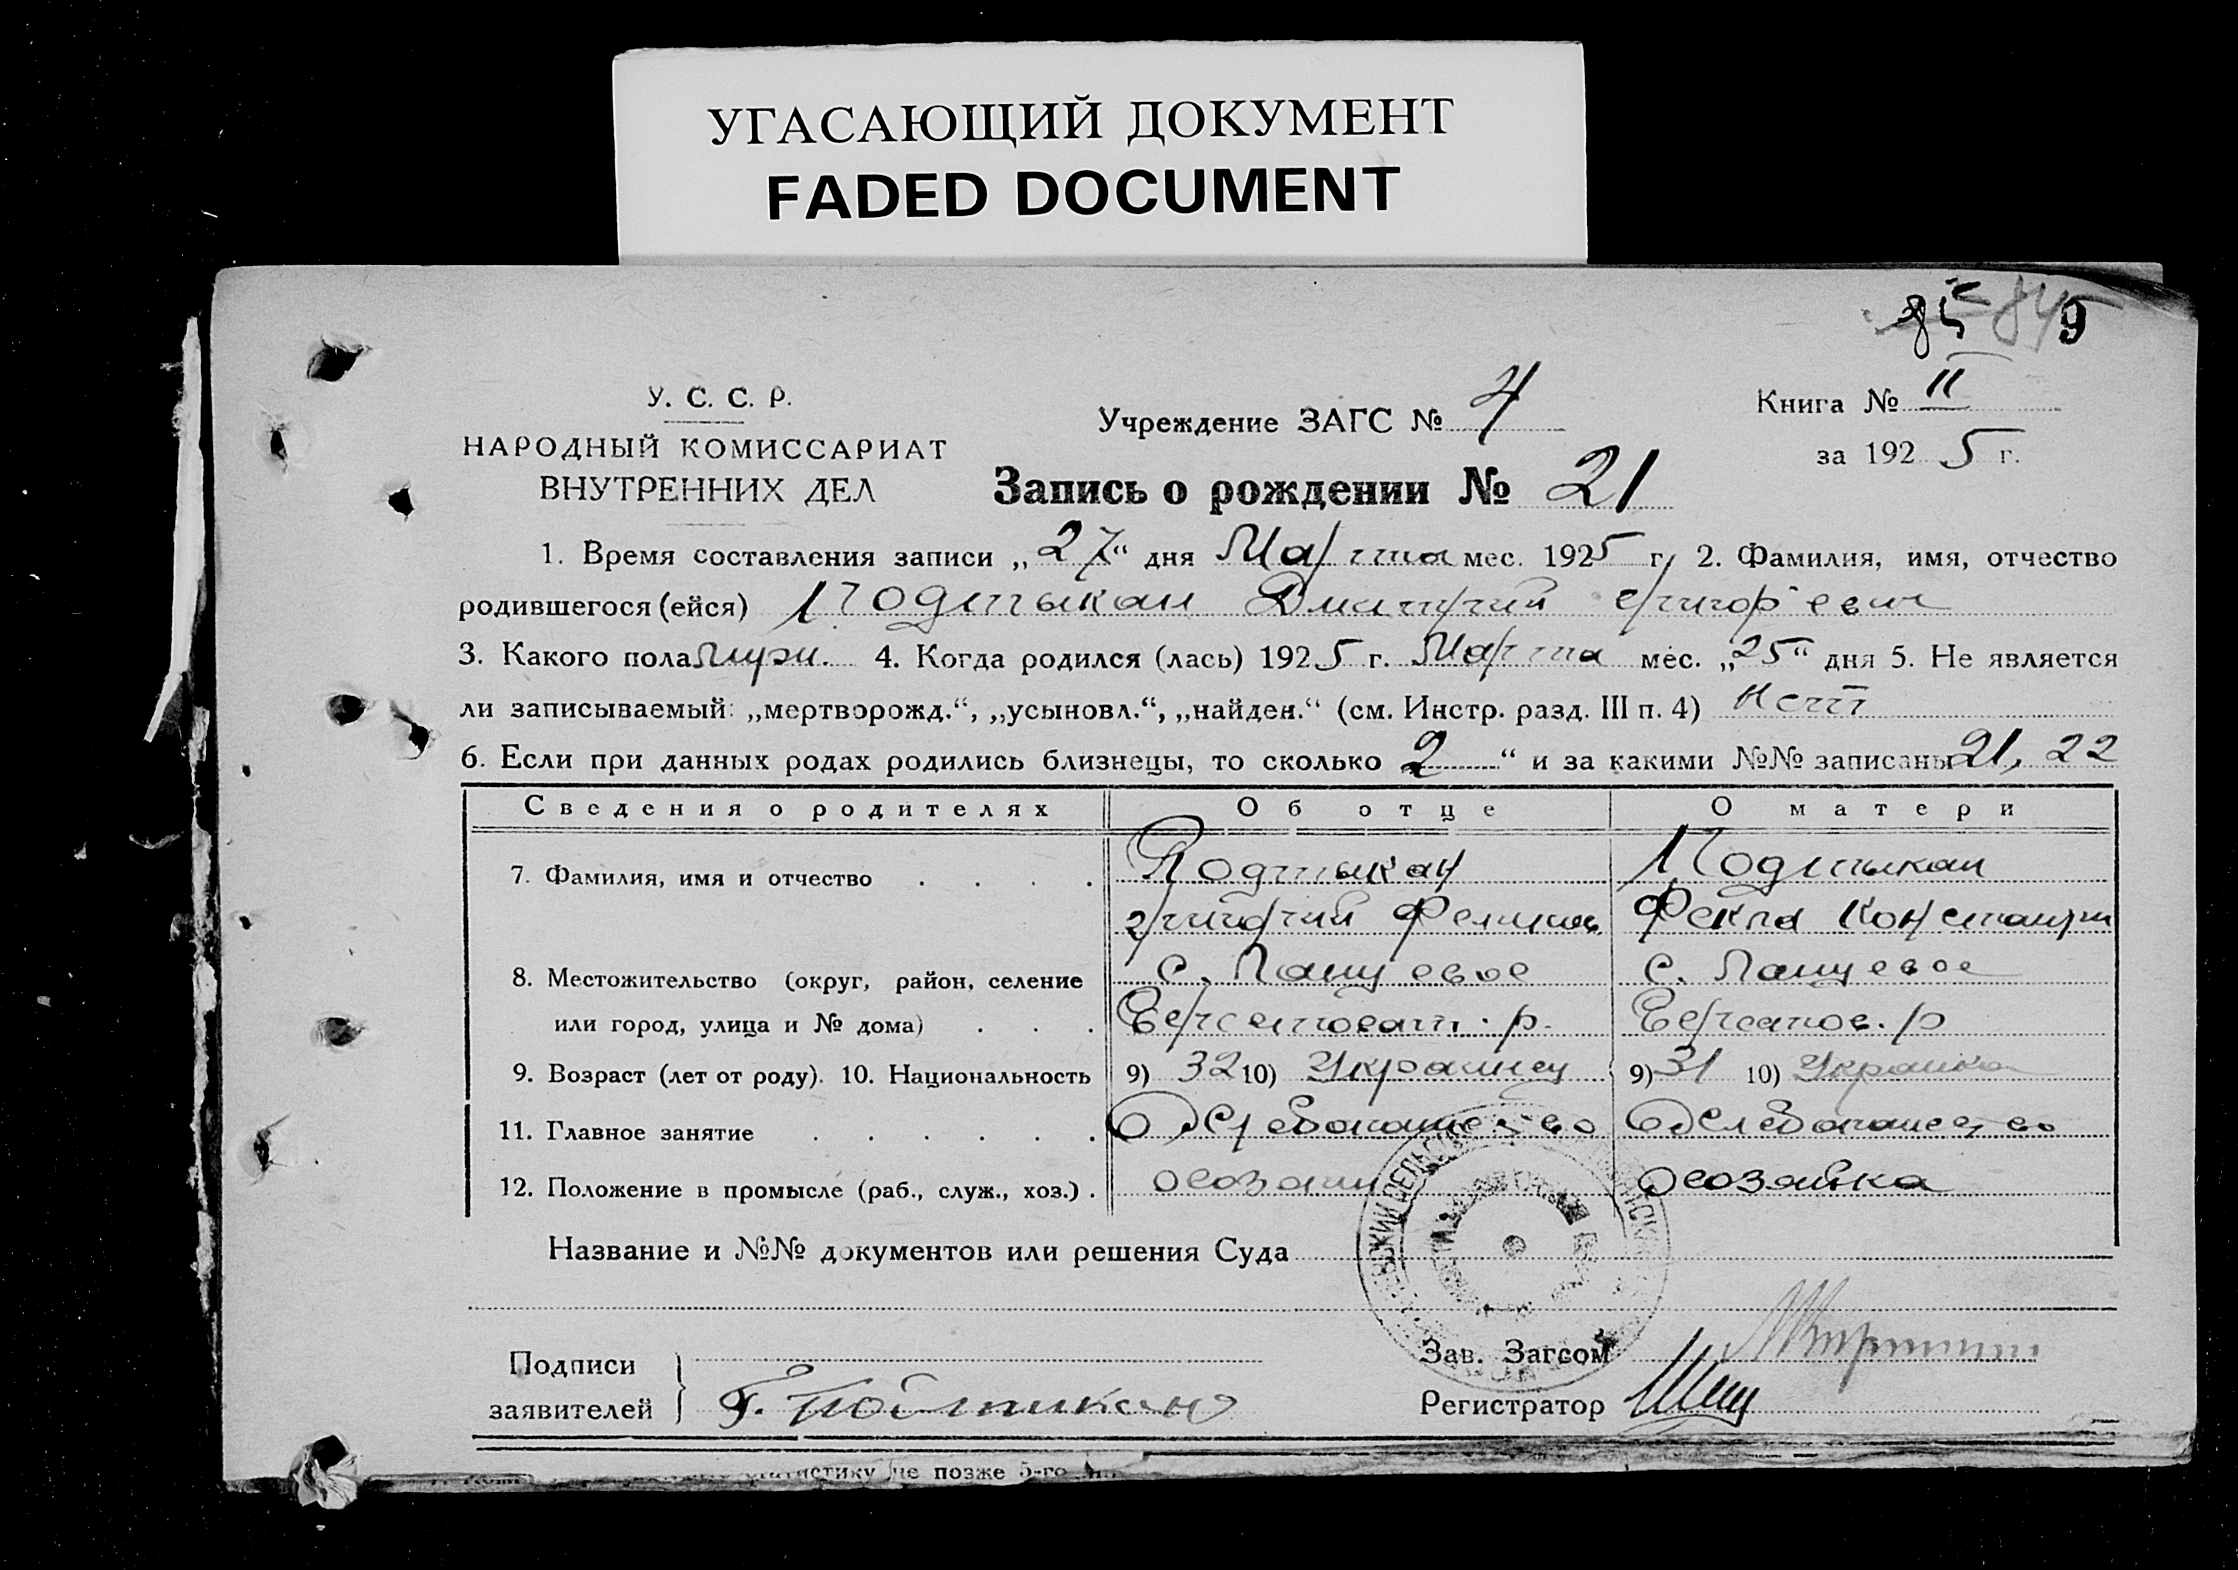 УГАСАЮЩИЙ ДОКУМЕНТ
FADED DOCUMENT
85 84 9
У. С. С. Р.
НАРОДНЫЙ КОМИССАРИАТ
ВНУТРЕННИХ ДЕЛ
Учреждение ЗАГС № 4
Книга № II
за 1925 г.
Запись о рождении № 21
1. Время составления записи „27“ дня Марта мес. 1925 г. 2. Фамилия, имя, отчество
родившегося (ейся) Подтыкан Дмитрий Григорьевич
3. Какого пола муж. 4. Когда родился (лась) 1925 г. Марта мес. „25“ дня 5. Не является
ли записываемый: „мертворожд.“, „усыновл.“, „найден.“ (см. Инстр. разд. III п. 4) нет
6. Если при данных родах родились близнецы, то сколько 2 “ и за какими №№ записаны 21, 22
Сведения о родителях Об отце О матери
7. Фамилия, имя и отчество Подтыкан Подтыкан
Григорий Фекла Констант
8. Местожительство (округ, район, селение с. с.
или город, улица и № дома) р. р
9. Возраст (лет от роду). 10. Национальность 9) 32 10) Украинец 9) 31 10) Украинка
11. Главное занятие
12. Положение в промысле (раб., служ., хоз.)
Название и №№ документов или решения Суда
Подписи
заявителей Г. Подтикан
Зав. Загсом
Регистратор
не позже 5-го